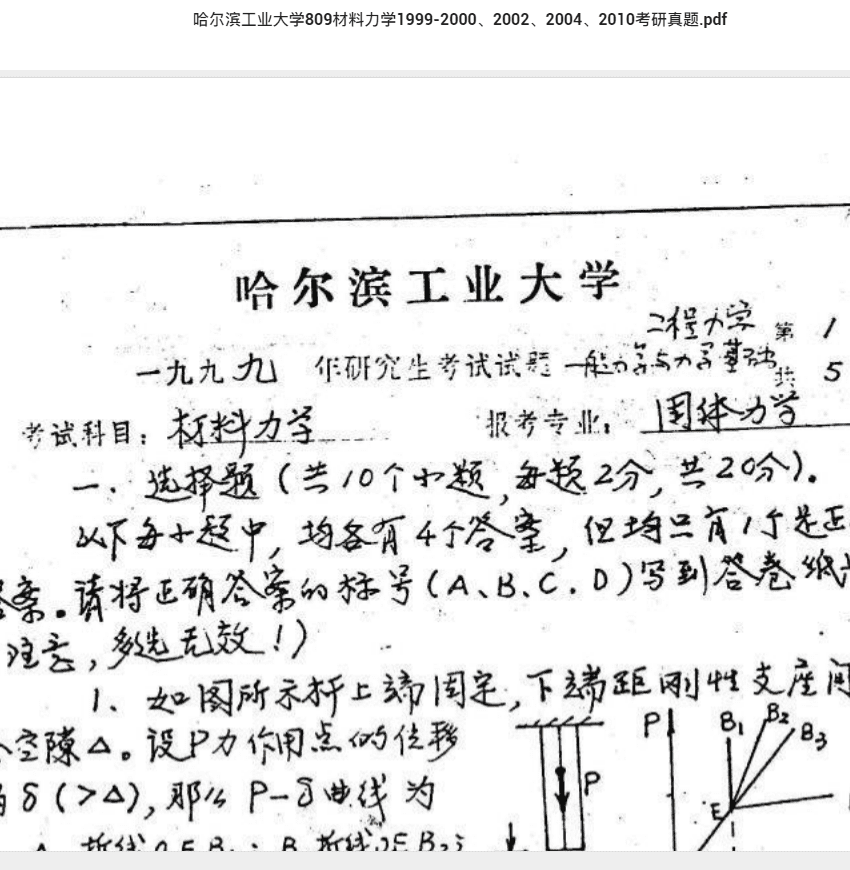 哈尔滨工业大学809材料力学1999-2000、2002、2004、2010考研真题.pdf
哈尔滨工业大学
工程力学 第 1
一九九九 年研究生考试试题 一般力学与力学基础 共 5
考试科目：材料力学 报考专业：固体力学
一、选择题（共10个小题，每题2分，共20分）。
以下每小题中，均各有4个答案，但均只有1个是正
答案。请将正确答案的标号（A、B、C、D）写到答卷纸
注意，多选无效！）
1、如图所示杆上端固定，下端距刚性支座间
空隙Δ。设P力作用点的位移
为δ（>Δ），那么P-δ曲线为
P
P
B1
B2
B3
E
A 折线OEB1； B 折线OEB2；